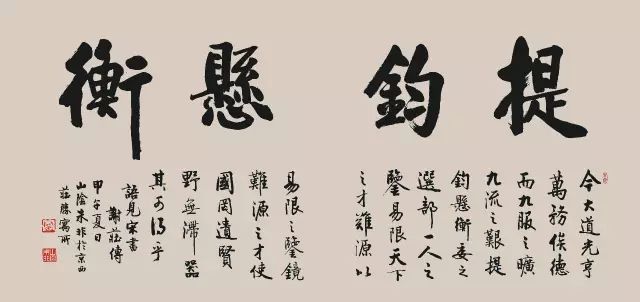 提鈞懸衡
今大道光亨
萬務俟德
而九服之曠
九流之艱提
鈞懸衡委之
選部一人之
鑒易限天下
之才難源以
易限之鑒鏡
難源之才使
國罔遺賢
野無滯器
其可得乎
語見宋書
謝莊傳
甲午夏日
山陰朱非於京西
莊勝寓所